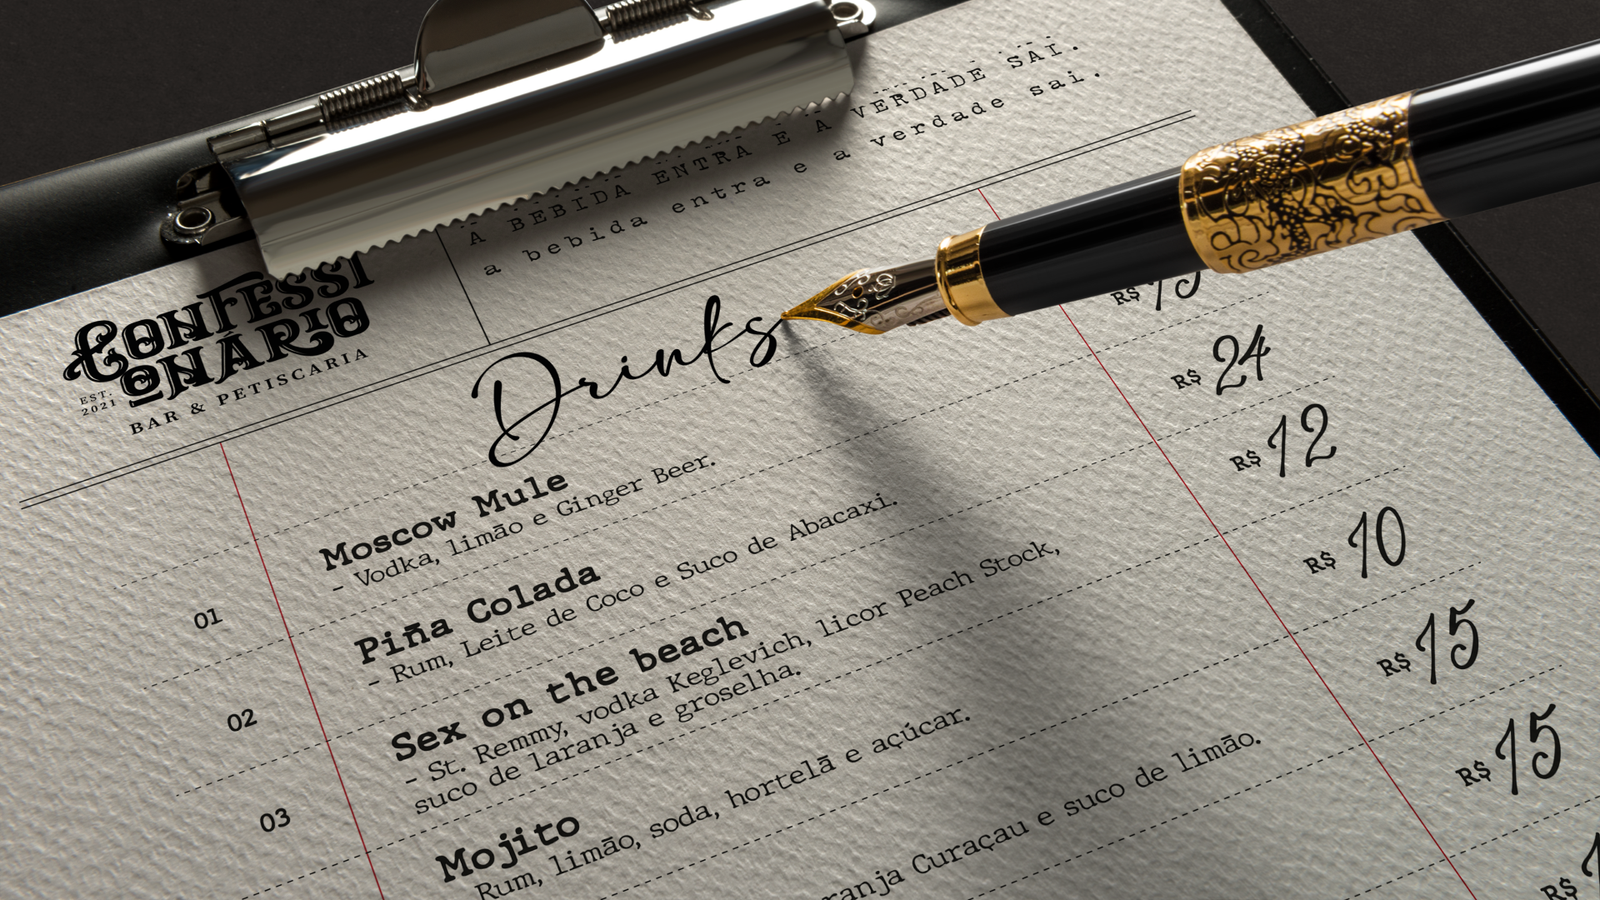 A BEBIDA ENTRA E A VERDADE SAI.
a bebida entra e a verdade sai.
CONFESSI
ONÁRIO
EST.
2021
BAR & PETISCARIA
Drinks
Moscow Mule
- Vodka, limão e Ginger Beer.
R$ 15
01
Piña Colada
- Rum, Leite de Coco e Suco de Abacaxi.
R$ 24
02
Sex on the beach
- St. Remmy, vodka Keglevich, licor Peach Stock,
suco de laranja e groselha.
R$ 12
03
Mojito
Rum, limão, soda, hortelã e açúcar.
R$ 10
ranja Curaçau e suco de limão.
R$ 15
R$ 15
R$